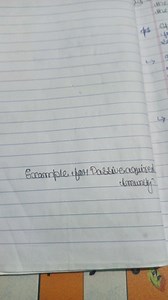 Example for Passive aquired
immunity